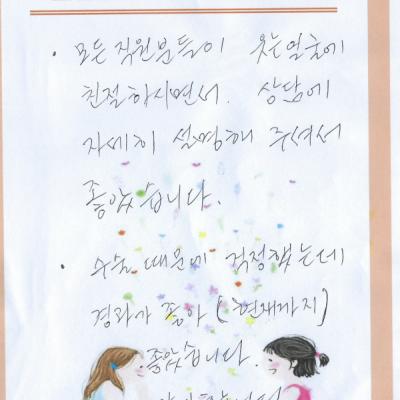 · 모든 직원분들이 웃는얼굴에
친절하시면서. 상담에
자세히 설명해 주셔서
좋았습니다.
· 수술 때문에 걱정했는데
경과가 좋아(현재까지)
좋았습니다.